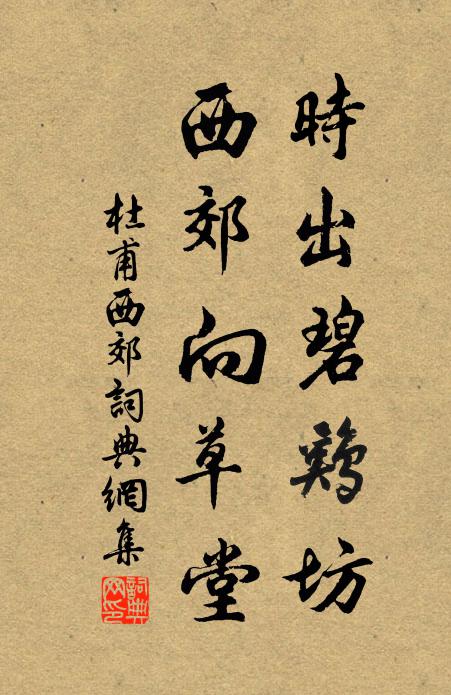 時出碧鷄坊
西郊向草堂
杜甫西郊詞典網集
詞典
网印